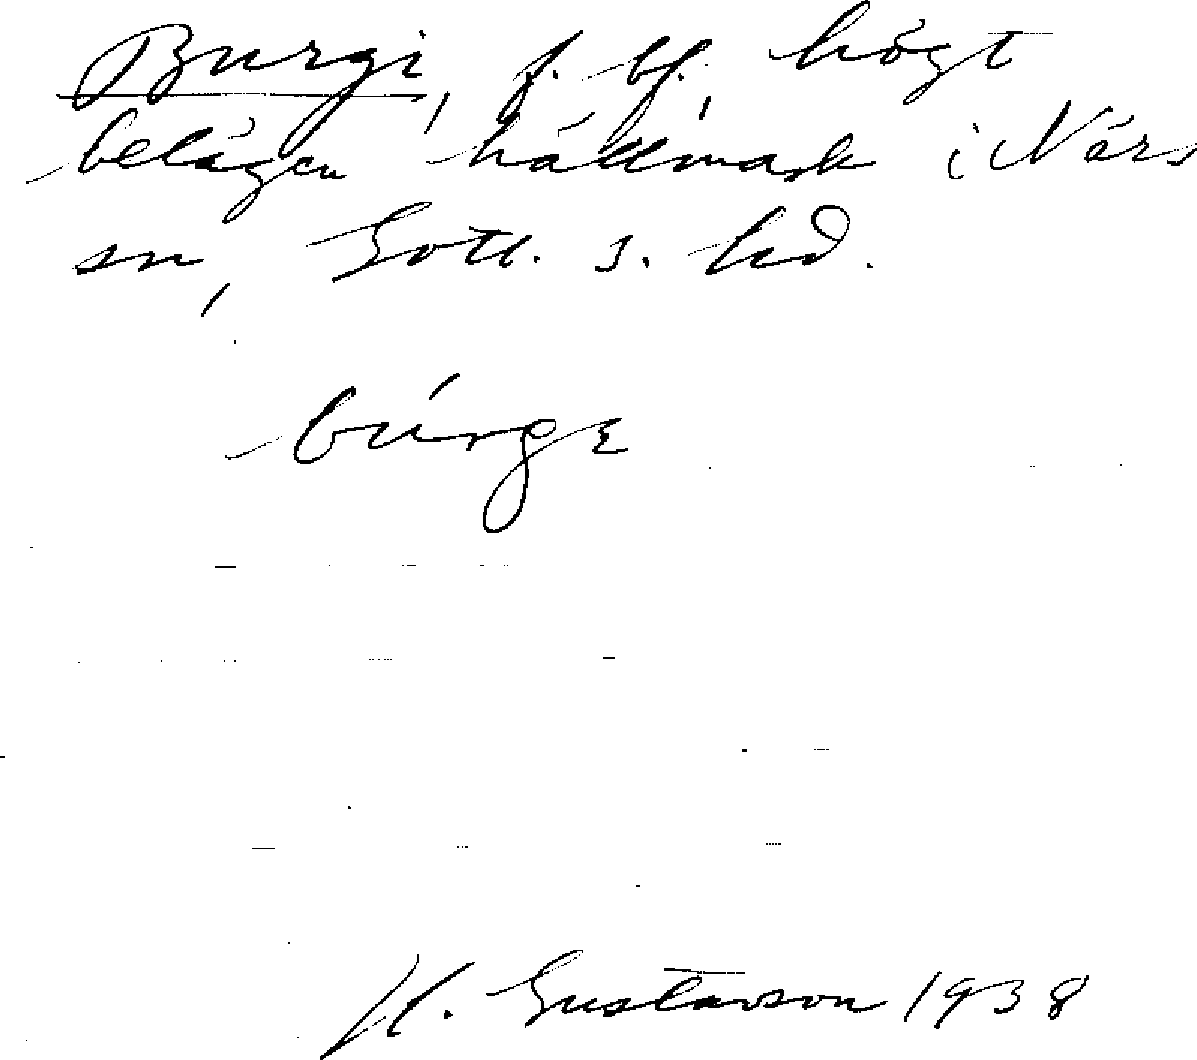 Burgi, f. bf., högt
belägen hällmark i Närs
sn, Gotl. s. hd.
búrgɛ
H. Gustavson 1938